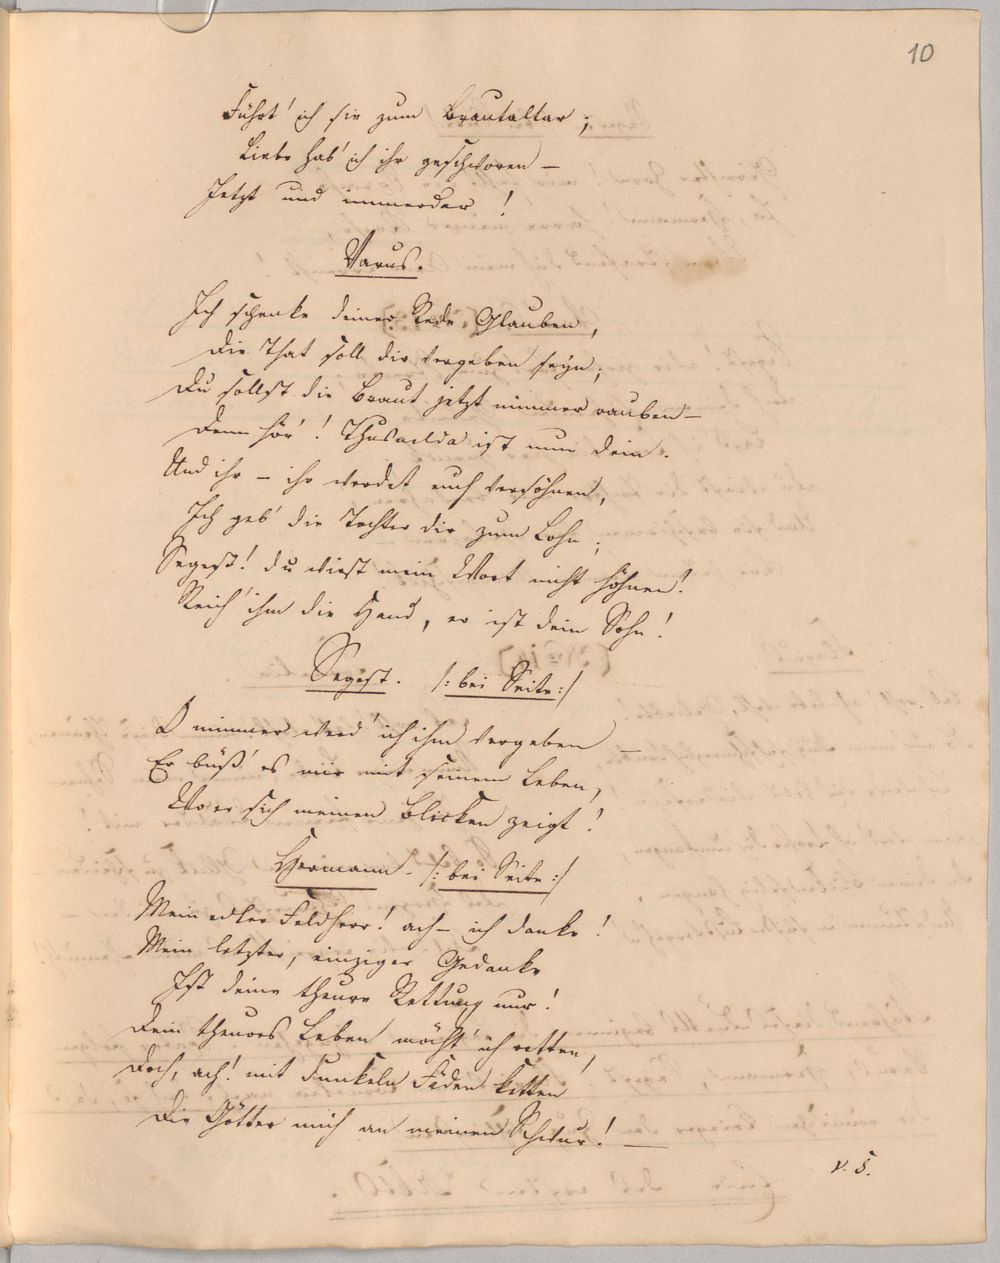 10
Führt' ich sie zum Brautaltar;
Liebe hab' ich ihr geschworen –
Jetzt und immerdar!
Varus.
Ich schenke deiner Rede Glauben,
Die That soll dir vergeben seyn;
Du sollst die Braut jetzt nimmer rauben –
Denn hör'! Thusnelda ist nun dein.
Und ihr – ihr werdet euch versöhnen,
Ich geb' die Tochter dir zum Lohn;
Segest! du wirst mein Wort nicht höhnen!
Reich' ihm die Hand, er ist dein Sohn!
Segest. /: bei Seite :/
O nimmer werd' ich ihm vergeben –
Er büß' es mir mit seinem Leben,
Wo er sich meinen Blicken zeigt!
Hermann. /: bei Seite :/
Mein edler Feldherr! ach – ich danke!
Mein letzter, einziger Gedanke
Ist deine theure Rettung nur!
Dein theures Leben möcht' ich retten,
Doch, ach! mit dunkeln Fäden ketten
Die Götter mich an meinen Schwur! —
v. S.